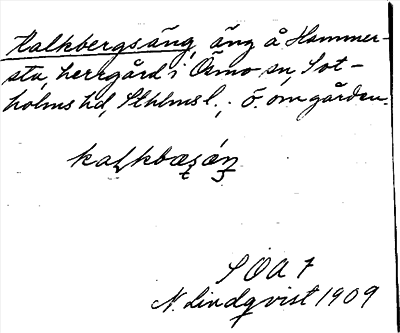 Kalkbergsäng, äng å Hammer-
sta, herrgård i Ösmo sn, Sot-
holms hd, Sthlms l.; ö. om gården.
SOA 7
N. Lindqvist 1909